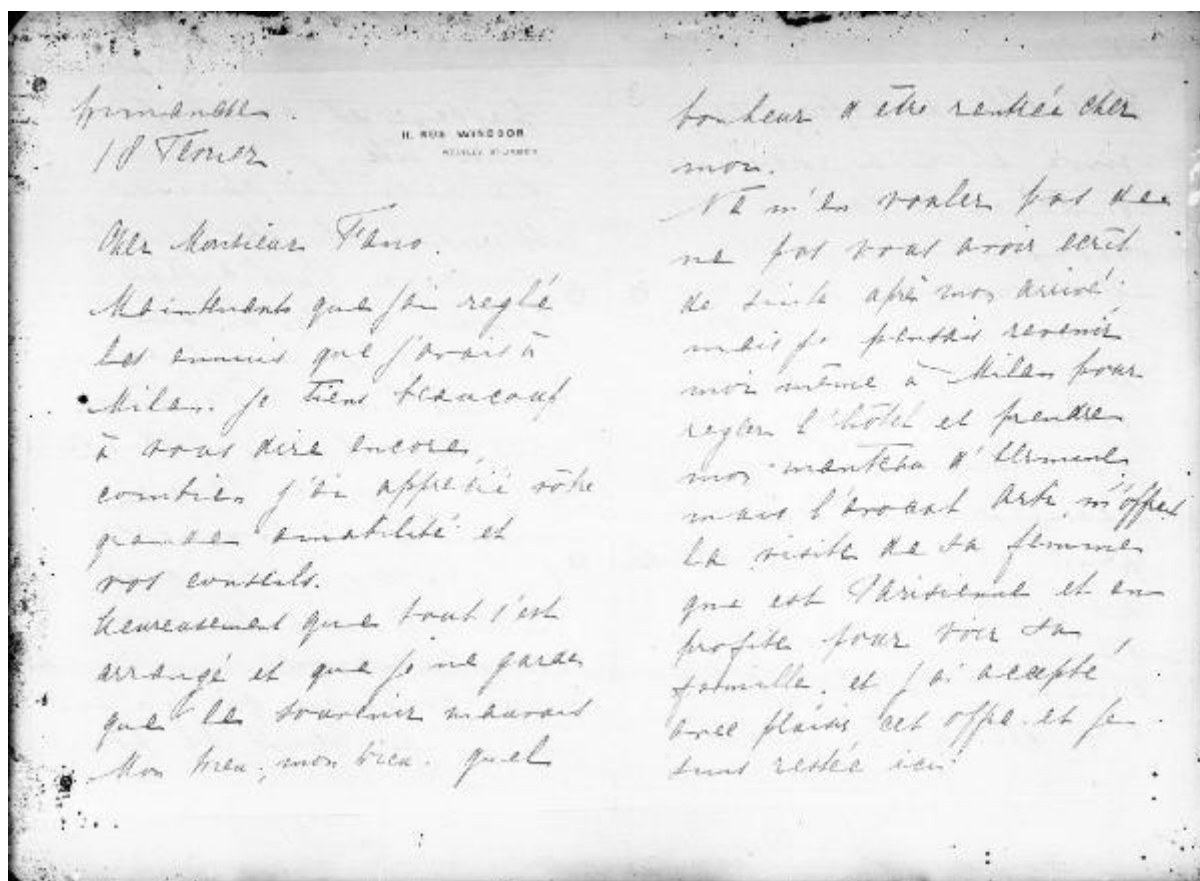 18 Fevrier
11. RUE WINDSOR
NEUILLY S/ SEINE
Cher Monsieur Fano.
Maintenant que j'ai reglé
les ennuis que j'avais à
Milan. je tiens beaucoup
à vous dire encore,
combien j'ai apprecié vôtre
grande amabilité et
vos conseils.
heureusement que tout s'est
arrangé et que je ne garde
que le souvenir mauvais
Mon Dieu, mon Dieu. quel
bonheur d'être rentrée cher
moi.
Ne m'en vouler pas de
ne pas vous avoir ecrit
de suite aprê mon arrivé.
mais je pensais revenir
moi même à Milan pour
regler l'hôtel et prendre
mon manteau d'Ermine
mais l'avocat m'offert
la visite de sa femme
que est Parisienne et en
profite pour voir sa
famille. et j'ai accepté
avec plaisir cet offre. et je
suis restée ici.